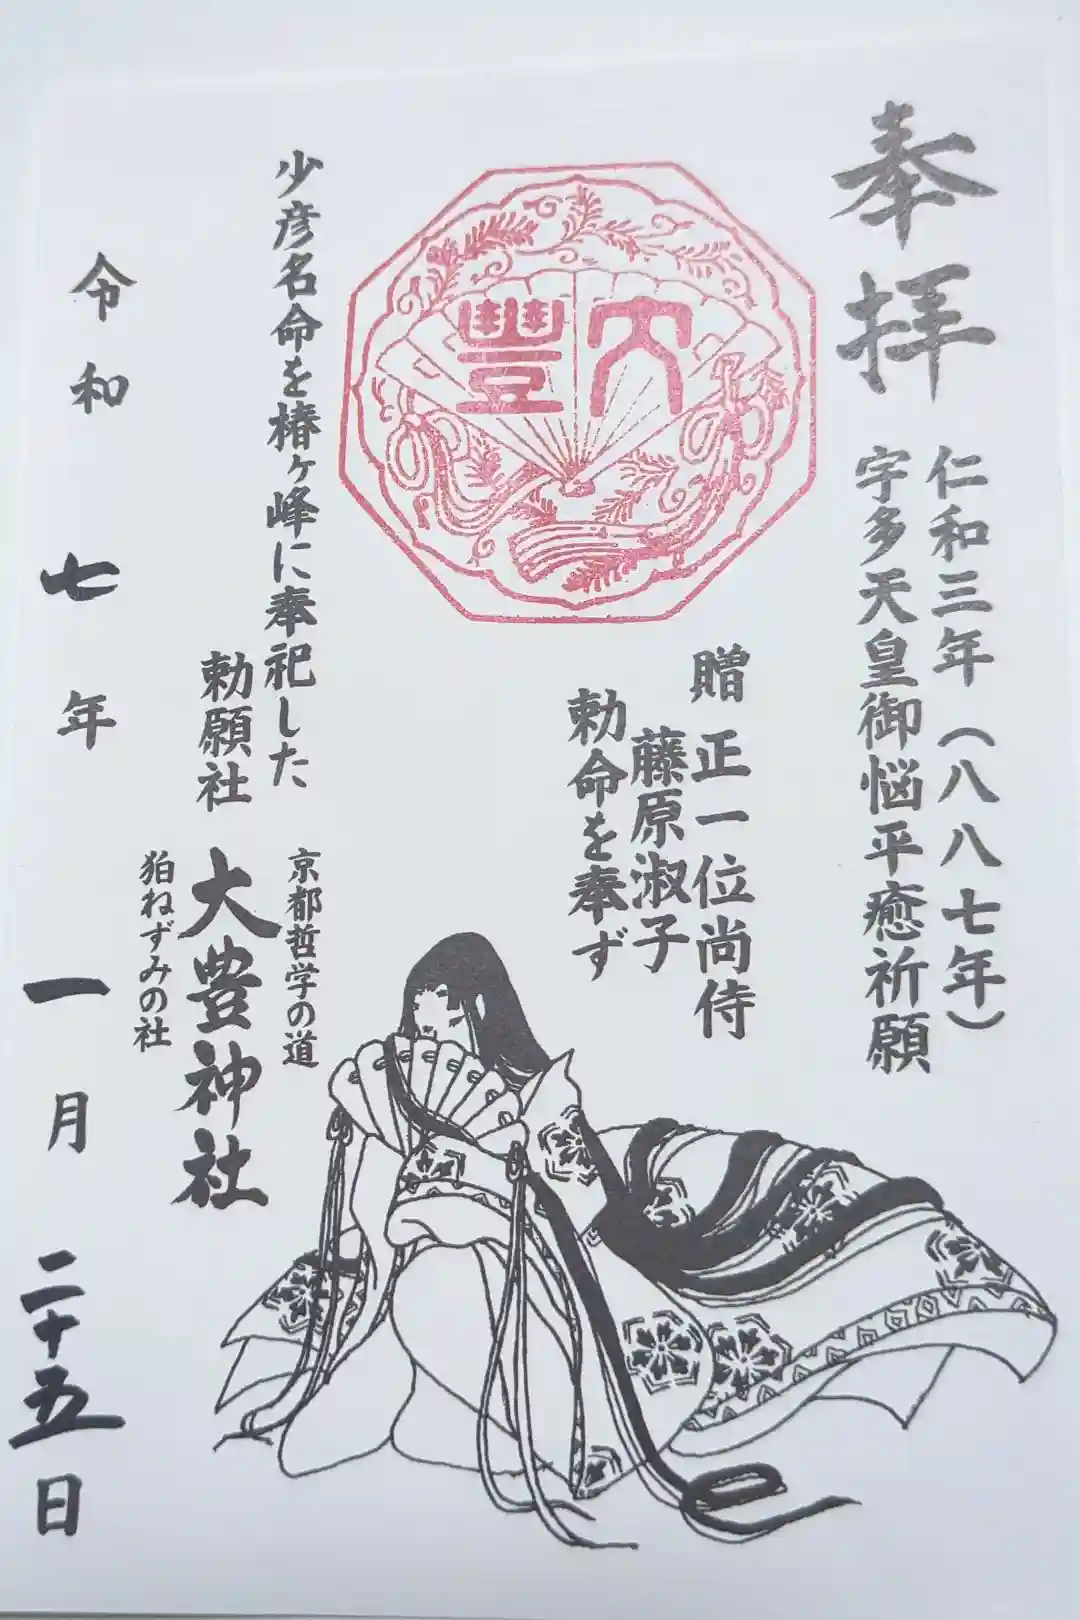 奉拝
仁和三年(八八七年)
宇多天皇御悩平癒祈願
大豐
贈 正一位尚侍
藤原淑子
勅命を奉ず
少彦名命を椿ヶ峰に奉祀した
勅願社
京都哲学の道
大豊神社
狛ねずみの社
令和七年一月二十五日